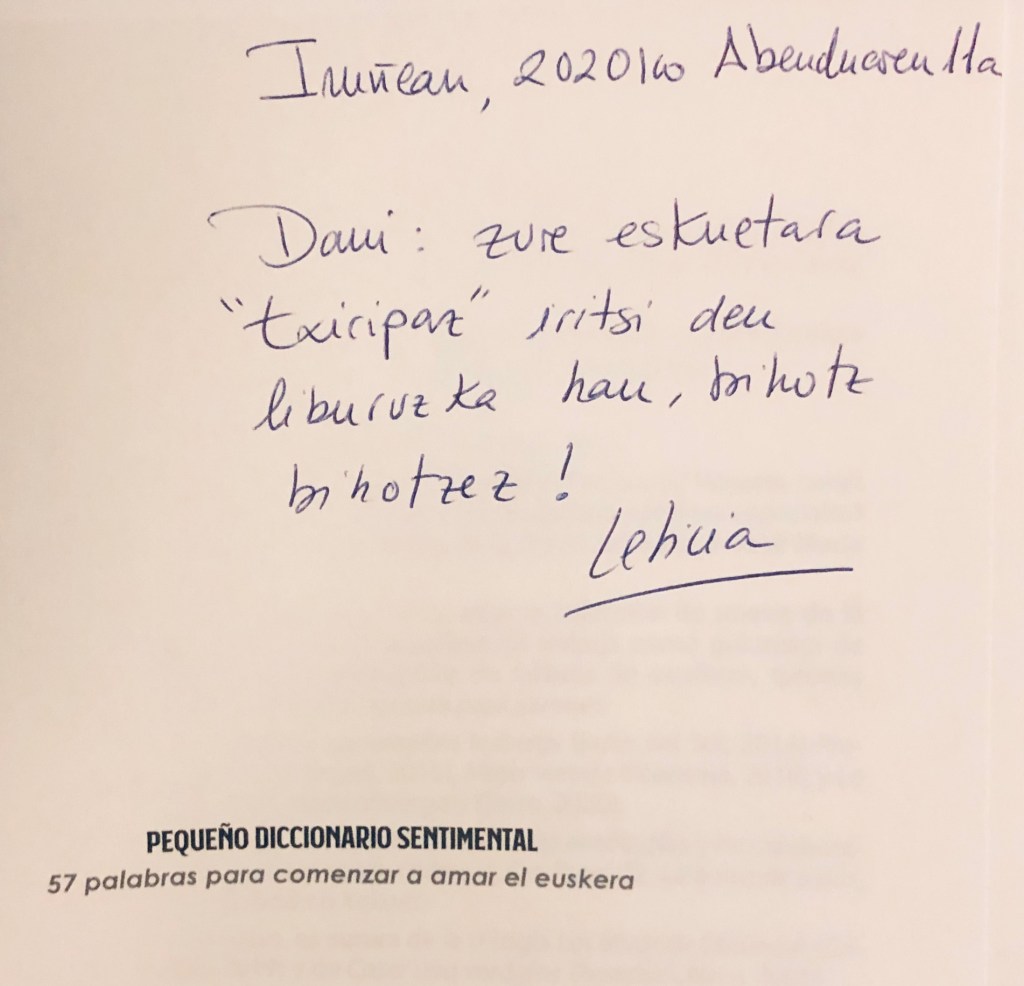 Iruñean, 2020ko Abenduaren 11a
Dani: zure eskuetara
"txiripaz" iritsi den
liburuzka hau, bihotz
bihotzez!
Leticia
PEQUEÑO DICCIONARIO SENTIMENTAL
57 palabras para comenzar a amar el euskera